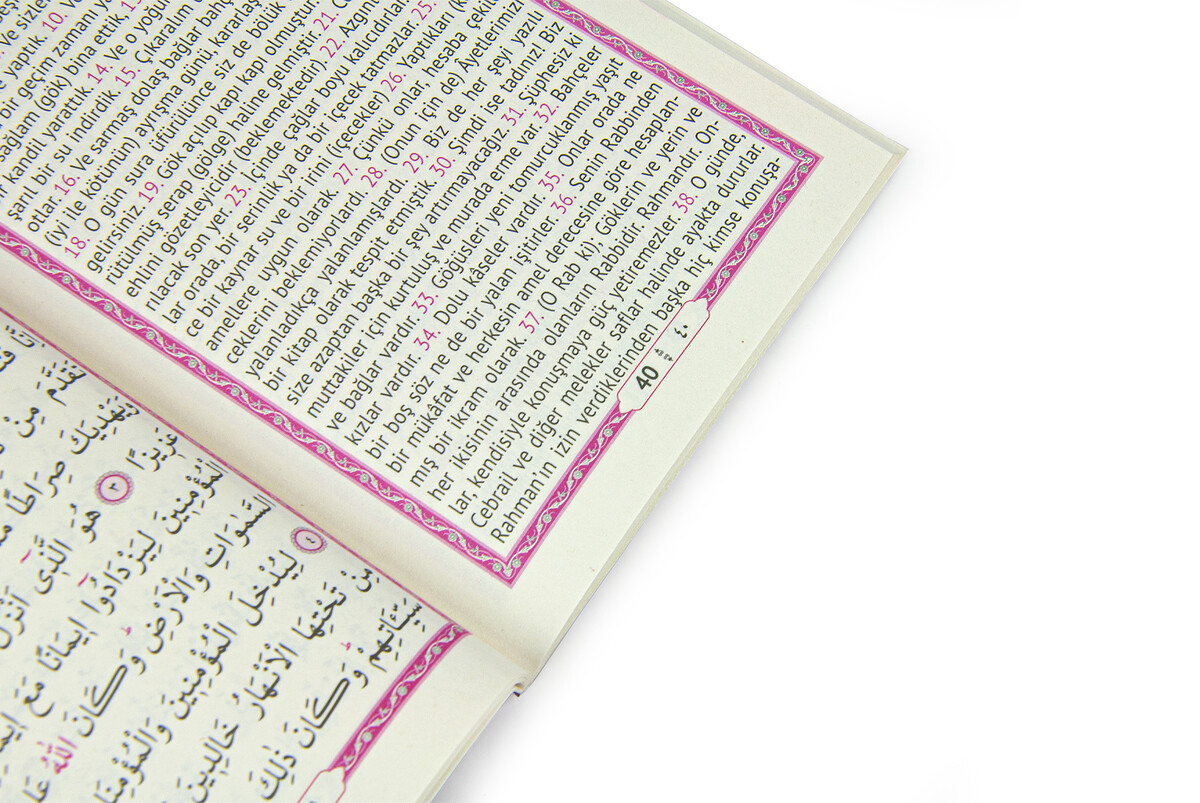 ve sizler
yaptık. 10. Ve
bir geçim zamanı
sağlam (gök) bina ettik.
kandil yarattık. 14. Ve o
şarıl bir su indirdik. 15. Çıkaralım
otlar. 16. Ve sarmaş dolaş bağlar
(iyi ile kötünün) ayrışma günü,
18. O gün sura üfürülünce siz de bölük
gelirsiniz. 19. Gök açılıp kapı kapı olmuştur.
rütülmüş serap (gölge) haline gelmiştir. 21.
ehlini gözetleyicidir (beklemektedir) 22.
rılacak son yer. 23. İçinde çağlar boyu kalıcıdırlar
lar orada, bir serinlik ya da bir içecek tatmazlar. 25.
ce bir kaynar su ve bir irini (çecekler) 26. Yaptıkları
amellere uygun olarak. 27. Çünkü onlar hesaba çekil
ceklerini beklemiyorlardı. 28. (Onun için de) Âyetlerimizi
yalanladıkça yalanlamışlardı. 29. Biz de her şeyi yazılı
bir kitap olarak tespit etmiştik. 30. Şimdi ise tadınız! Biz
size azaptan başka bir şey artırmayacağız. 31. Şüphesiz ki
muttakiler için kurtuluş ve murada erme var. 32. Bahçeler
ve bağlar vardır. 33. Göğüsleri yeni tomurcuklanmış yaşıt
kızlar vardır. 34. Dolu kâseler vardır. 35. Onlar orada ne
bir boş söz ne de bir yalan işitirler. 36. Senin Rabbinden
bir mükâfat ve herkesin amel derecesine göre hesaplan-
mış bir ikram olarak. 37. (O Rab ki), Göklerin ve yerin ve
her ikisinin arasında olanların Rabbidir. Rahmandır. On-
lar, kendisiyle konuşmaya güç yetiremezler. 38. O günde,
Cebrail ve diğer melekler saflar halinde ayakta dururlar.
Rahman'ın izin verdiklerinden başka hiç kimse konuşa-
40 ٤٠
تَقَدَّمَ مِنْ
وَيَهْدِيَكَ صِرَاطًا
عَزِيزًا ٣ هُوَ الَّذِى اَنْزَلَ
الْمُؤْمِنِينَ لِيَزْدَادُوا اِيمَانًا مَعَ
السَّمٰوَاتِ وَالْاَرْضِ وَكَانَ اللّٰهُ
٤ لِيُدْخِلَ الْمُؤْمِنِينَ وَالْمُؤْمِنَاتِ
مِنْ تَحْتِهَا الْاَنْهَارُ خَالِدِينَ
سَيِّـَٔاتِهِمْ وَكَانَ ذٰلِكَ